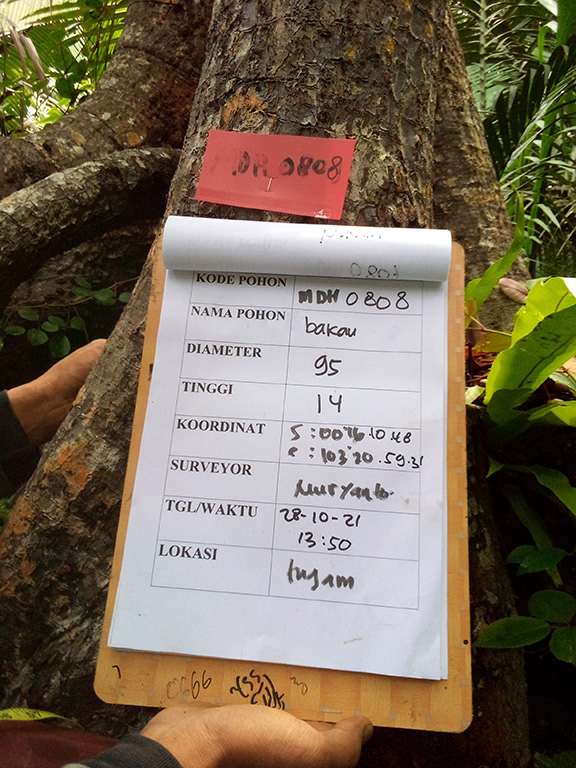 MDH 0808
KODE POHON MDH 0808
NAMA POHON bakau
DIAMETER 95
TINGGI 14
KOORDINAT S : 00°16.10.48
e : 103°20.59.31
SURVEYOR Nuryanto
TGL/WAKTU 28-10-21
13:50
LOKASI